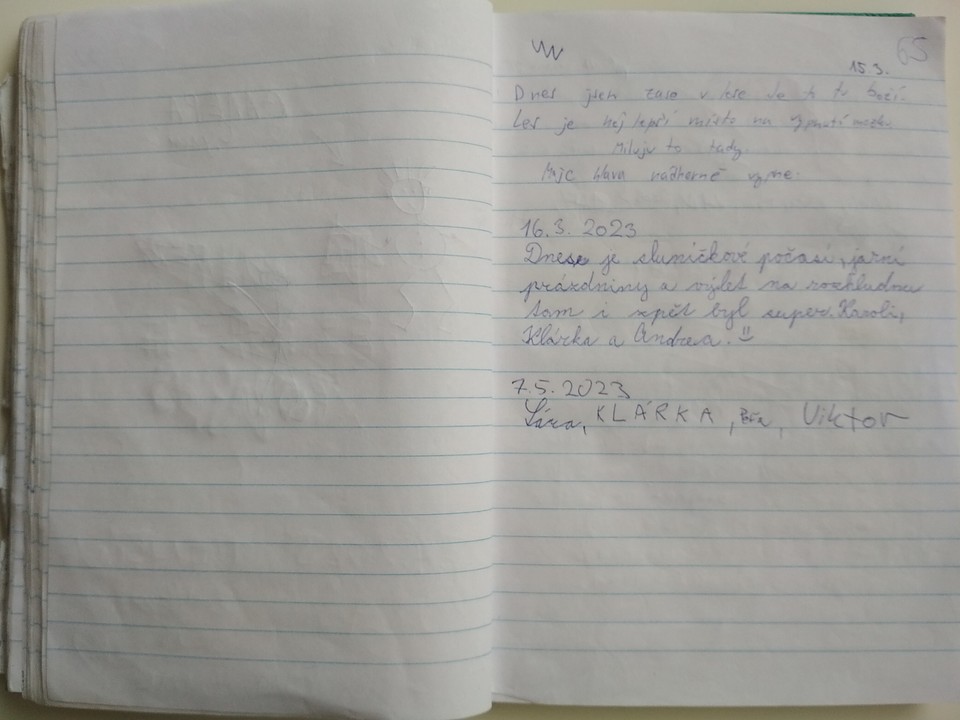 65
15.3.
Dnes jsem zase v lese
Les je nejlepší místo na vypnutí mozku.
Miluju to tady.
Moje hlava nádherně vypne.
16.3. 2023
Dnes je sluníčkové počasí, jarní
prázdniny a výlet na rozhlednu
tam i zpět byl super. Karoli,
Klárka a Andrea. :)
7.5. 2023
Sára, KLÁRKA, Viktor